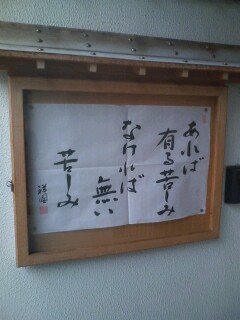 あれば
有る苦しみ
なければ
無い
苦しみ